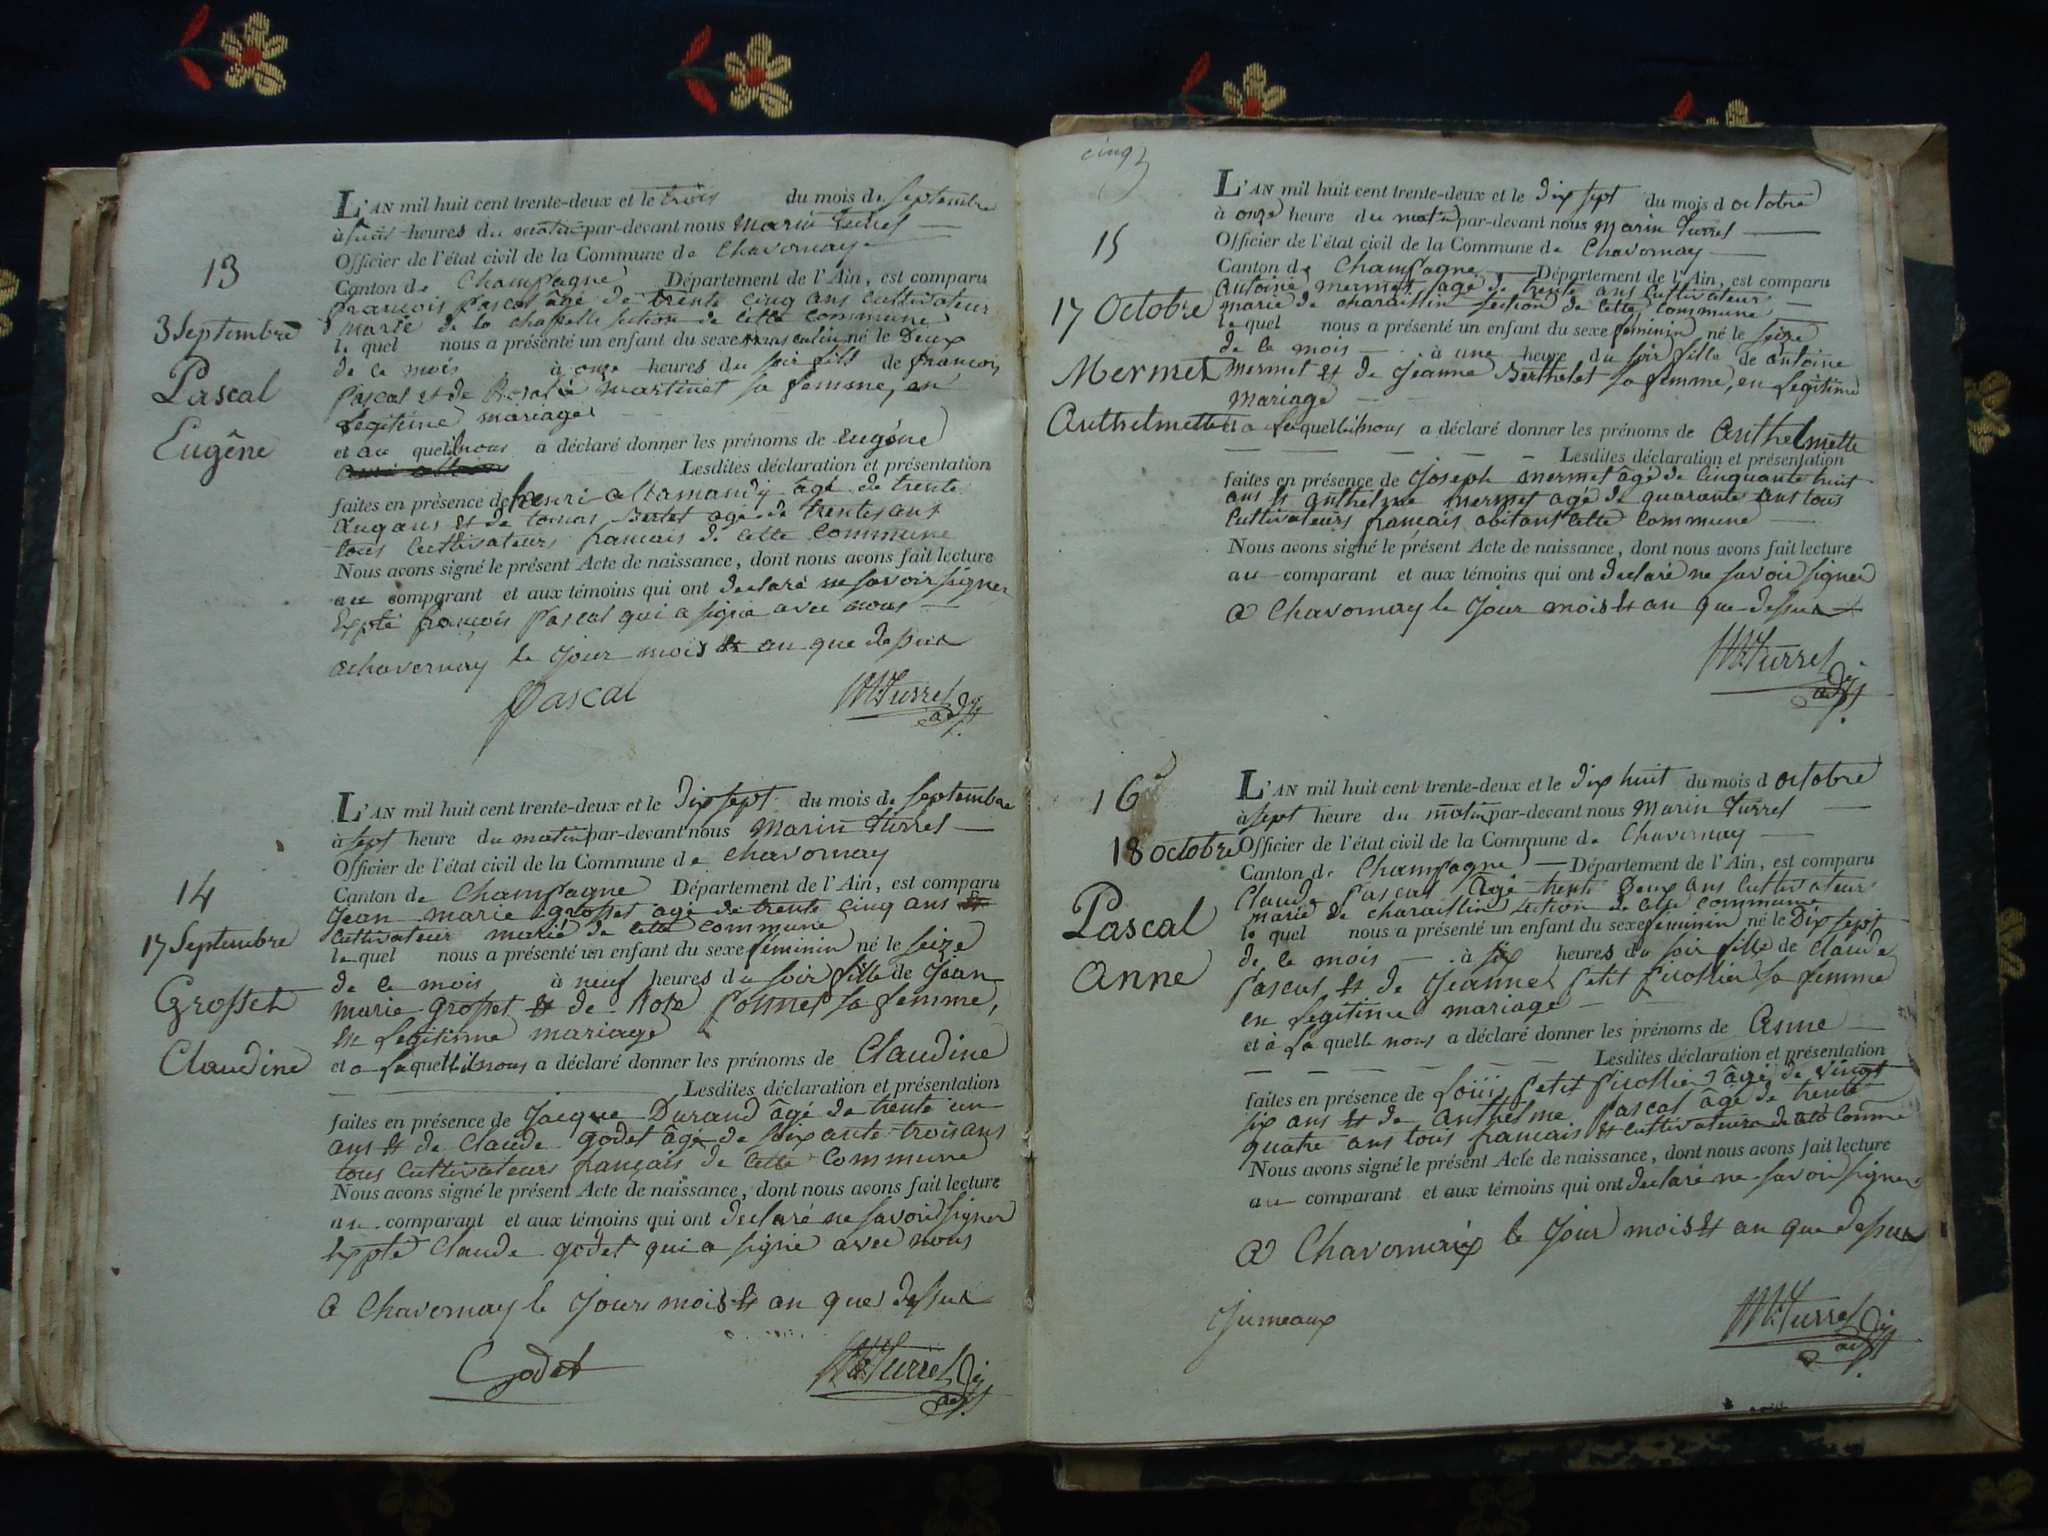 13
3 Septembre
Pascal
Eugêne
L'AN mil huit cent trente-deux et le trois du mois de Septembre
à heures du matin par-devant nous Marin Turrel
Officier de l'état civil de la Commune de Chavornay
Canton de Champagne Département de l'Ain, est comparu
françois Pascal âgé de trente cinq ans cultivateur
marié de la chappelle section de cette commune
le quel nous a présenté un enfant du sexe masculin né le Deux
de ce mois à onze heures du soir fils de françois
Pascal et de Rosalie Martinet sa femme, en
Legitime mariage
et au quel il nous a déclaré donner les prénoms de Eugéne
Lesdites déclaration et présentation
faites en présence de henri allamandÿ âgé de trente
cinq ans et de tomas Bertet agé de trentes ans
tous Cultivateurs francais de cette commune
Nous avons signé le présent Acte de naissance, dont nous avons fait lecture
au comparant et aux témoins qui ont declaré ne savoir signer
Expté françois Pascal qui a signé avec nous
a chavornay le jour mois et an que dessus
Pascal Mt Turrel adjt
14
17 Septembre
Grosset
Claudine
L'AN mil huit cent trente-deux et le Dix sept du mois de Septembre
à sept heure du matin par-devant nous Marin Turrel
Officier de l'état civil de la Commune de chavornay
Canton de Champagne Département de l'Ain, est comparu
Jean marie grosset agé de trente cinq ans
Cultivateur marié de cette commune
le quel nous a présenté un enfant du sexe féminin né le Seize
de ce mois à neuf heures du soir fille de Jean
marie grosset et de Rose sa femme,
en Legitime mariage
et a laquelle il nous a déclaré donner les prénoms de Claudine
Lesdites déclaration et présentation
faites en présence de Jacque Durand âgé de trente un
ans et de Claude godet âgé de soixante trois ans
tous Cultivateurs français de cette commune
Nous avons signé le présent Acte de naissance, dont nous avons fait lecture
au comparant et aux témoins qui ont declaré ne savoir signer
Expté Claude godet qui a signé avec nous
a Chavornay le jour mois et an que dessus
Godet Mt Turrel adjt
cinq
15
17 Octobre
Mermet
Anthelmette
L'AN mil huit cent trente-deux et le Dix sept du mois d octobre
à onze heure du matin par-devant nous Marin Turrel
Officier de l'état civil de la Commune de Chavornay
Canton de Champagne Département de l'Ain, est comparu
Antoine mermet agé de trente ans Cultivateur
marié de charaillin section de cette commune
le quel nous a présenté un enfant du sexe feminin né le seize
de ce mois à une heure du soir fille de antoine
mermet et de Jeanne Berthelet sa femme, en Legitime
Mariage
et a laquelle il nous a déclaré donner les prénoms de Anthelmette
Lesdites déclaration et présentation
faites en présence de Joseph mermet âgé de Cinquante huit
ans et anthelme mermet agé de quarante ans tous
Cultivateurs français abitant cette commune
Nous avons signé le présent Acte de naissance, dont nous avons fait lecture
au comparant et aux témoins qui ont declaré ne savoir signer
a Chavornay le jour mois et an que dessus
Mt Turrel adjt
16
18 octobre
Pascal
Anne
L'AN mil huit cent trente-deux et le dix huit du mois d octobre
à sept heure du matin par-devant nous Marin Turrel
Officier de l'état civil de la Commune de Chavornay
Canton de Champagne Département de l'Ain, est comparu
Claude Pascal Agé trente Deux ans Cultivateur
marié de charaillin section de cette commune
le quel nous a présenté un enfant du sexe feminin né le Dix sept
de ce mois à six heures du soir fille de Claude
Pascal et de Jeanne Petit Picollier sa femme
en Legitime mariage
et à la quelle nous a déclaré donner les prénoms de Anne
Lesdites déclaration et présentation
faites en présence de Loüis Petit Picollier âgé de vingt
six ans et de Anthelme Pascal âgé de trente
quatre ans tous francais et cultivateurs de
Nous avons signé le présent Acte de naissance, dont nous avons fait lecture
au comparant et aux témoins qui ont declaré ne savoir signer
a Chavornay le jour mois et an que dessus
Jumeaux Mt Turrel adjt